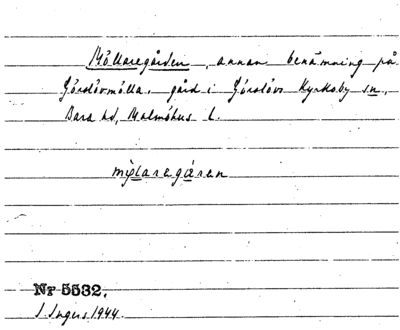 Möllaregården, annan benämning på
Görslövmölla, gård i Görslövs Kyrkoby sn,
Bara hd, Malmöhus l.
möllaregåren
Nr 5532.
I. Ingers 1944.